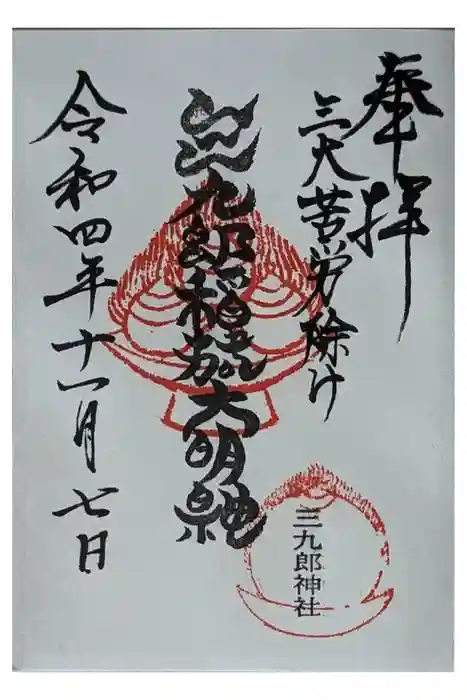 奉拝
三大苦労除け
三九郎稲荷大明神
三九郎神社
令和四年十一月七日